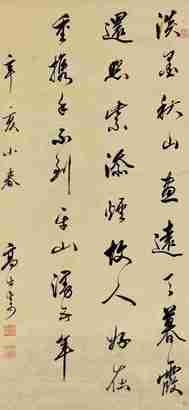 淡墨秋山畫遠天暮霞
還照紫添煙故人好在
重攜手不到平山漫五年
辛亥小春 高士奇